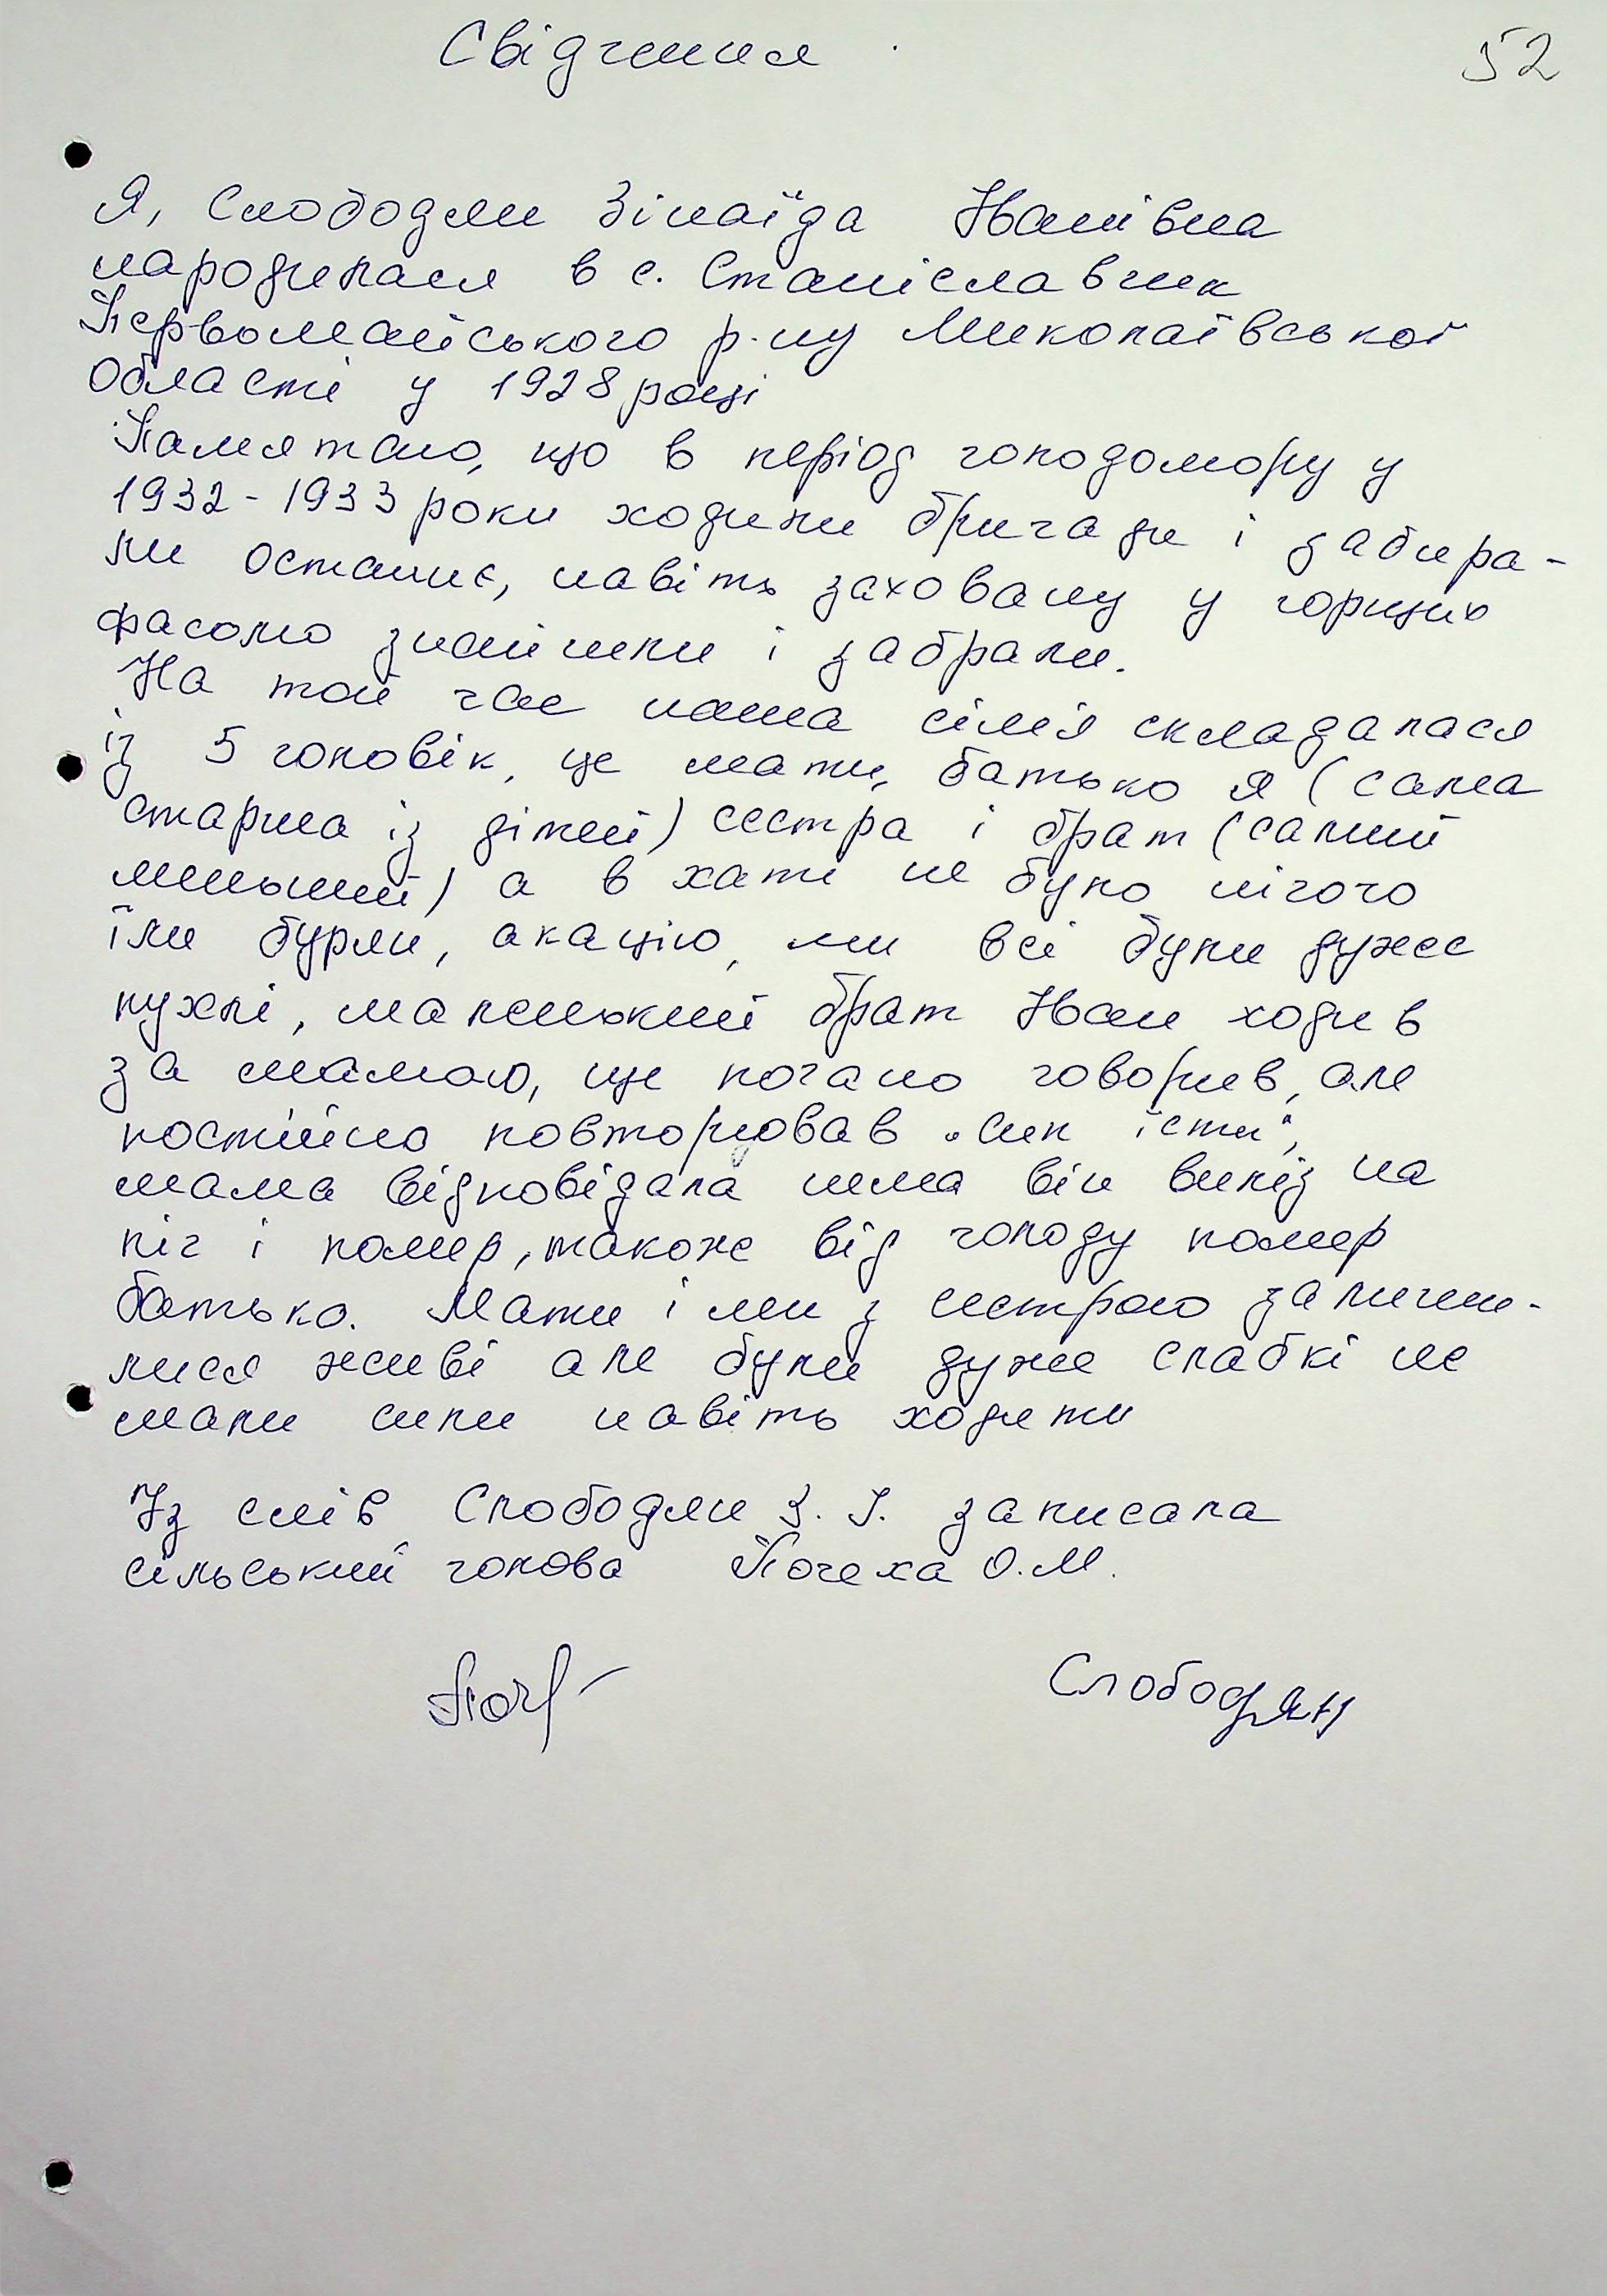 Свідчення
52
Я, Слободян Зінаїда Іванівна
народилася в с. Станіславчик
Первомайського р-ну Миколаївської
області у 1928 році
Памятаю, що в період голодомору у
1932-1933 роки ходили бригади і забира-
ли останнє, навіть заховану у горщику
фасолю знайшли і забрали.
На той час наша сімія складалася
із 5 чоловік, це мати, батько я (сама
старша із дітей) сестра і брат (самий
меньший) а в хаті не було нічого
їли бурян, акацію, ми всі були дуже
пухлі, маленький брат Іван ходив
за мамою, ще погано говорив, але
постійно повторював „Сик їсти",
мама відповідала нема він виліз на
піч і помер, також від голоду помер
батько. Мати і ми з сестрою залиши-
лися живі але були дуже слабкі не
мали сили навіть ходити
Із слів Слободян З. І. записала
сільський голова Почеха О.М.
Слободян